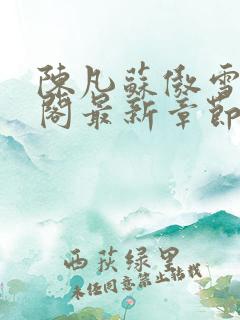 陳凡蘇傲雪
閣最新章節
西荻绿里
未经同意禁止转载